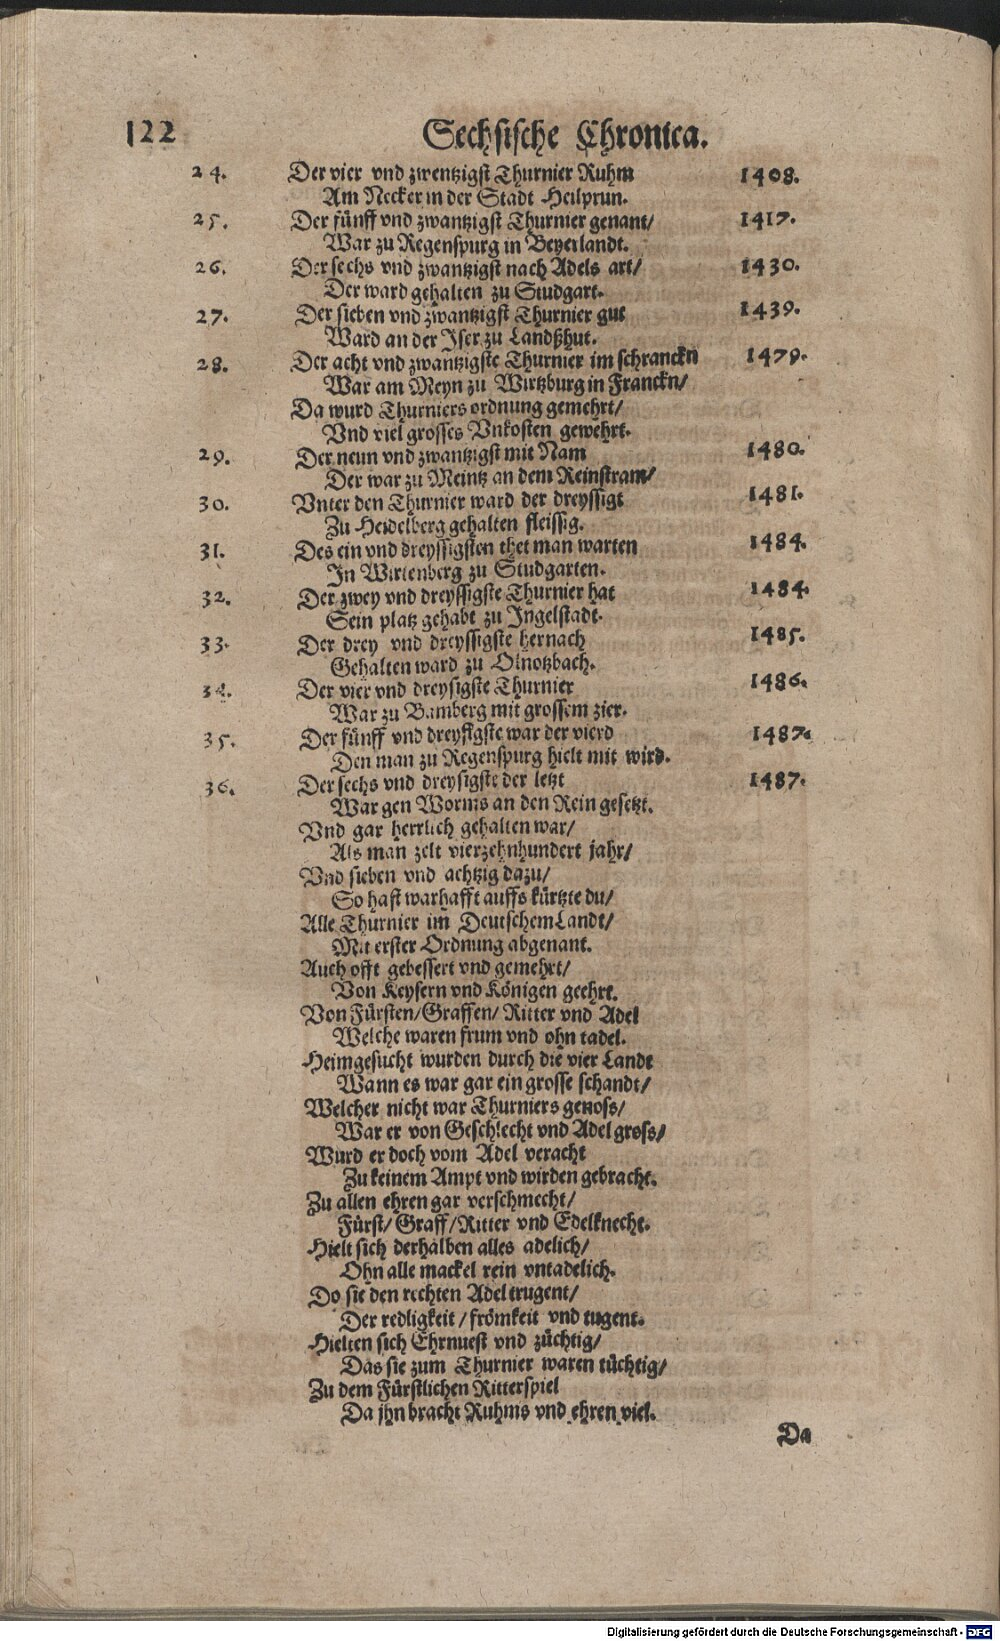 122 Sechsische Chronica.
24. Der vier vnd zwentzigst Thurnier Ruhm 1408.
Am Necker in der Stadt Heilprun.
25. Der fünff vnd zwantzigst Thurnier genant/ 1417.
War zu Regenspurg in Beyerlandt.
26. Der sechs vnd zwantzigst nach Adels art/ 1430.
Der ward gehalten zu Studgart.
27. Der sieben vnd zwantzigst Thurnier gut 1439.
Ward an der Iser zu Landßhut.
28. Der acht vnd zwantzigste Thurnier im schranckn 1479.
War am Meyn zu Wirtzburg in Franckn/
Da wurd Thurniers ordnung gemehrt/
Vnd viel grosses Vnkosten gewehrt.
29. Der neun vnd zwantzigst mit Nam 1480.
Der war zu Meintz an dem Reinstram/
30. Vnter den Thurnier ward der dreyssigt 1481.
Zu Heidelberg gehalten fleissig.
31. Des ein vnd dreyssigsten thet man warten 1484.
In Wirtenberg zu Studgarten.
32. Der zwey vnd dreyssigste Thurnier hat 1484.
Sein platz gehabt zu Ingelstadt.
33. Der drey vnd dreyssigste hernach 1485.
Gehalten ward zu Olnotzbach.
34. Der vier vnd dreysigste Thurnier 1486.
War zu Bamberg mit grossem zier.
35. Der fünff vnd dreyssigste war der vierd 1487.
Den man zu Regenspurg hielt mit wird.
36. Der sechs vnd dreysigste der letzt 1487.
War gen Worms an den Rein gesetzt.
Vnd gar herrlich gehalten war/
Als man zelt vierzehnhundert jahr/
Vnd sieben vnd achtzig dazu/
So hast warhafft auffs kürtzte du/
Alle Thurnier im Deutschem Landt/
Mit erster Ordnung abgenant.
Auch offt gebessert vnd gemehrt/
Von Keysern vnd Königen geehrt.
Von Fürsten/ Graffen/ Ritter vnd Adel
Welche waren frum vnd ohn tadel.
Heimgesucht wurden durch die vier Landt
Wann es war gar ein grosse schandt/
Welcher nicht war Thurniers genoss/
War er von Geschlecht vnd Adel gross/
Wurd er doch vom Adel veracht
Zu keinem Ampt vnd wirden gebracht.
Zu allen ehren gar verschmecht/
Fürst/ Graff/ Ritter vnd Edelknecht.
Hielt sich derhalben alles adelich/
Ohn alle mackel rein vntadelich.
Do sie den rechten Adel trugent/
Der redligkeit/ frömkeit vnd tugent.
Hielten sich Ehrnuest vnd züchtig/
Das sie zum Thurnier waren tüchtig/
Zu dem Fürstlichen Ritterspiel
Da jhn bracht Ruhms vnd ehren viel.
Da
Digitalisierung gefördert durch die Deutsche Forschungsgemeinschaft - DFG